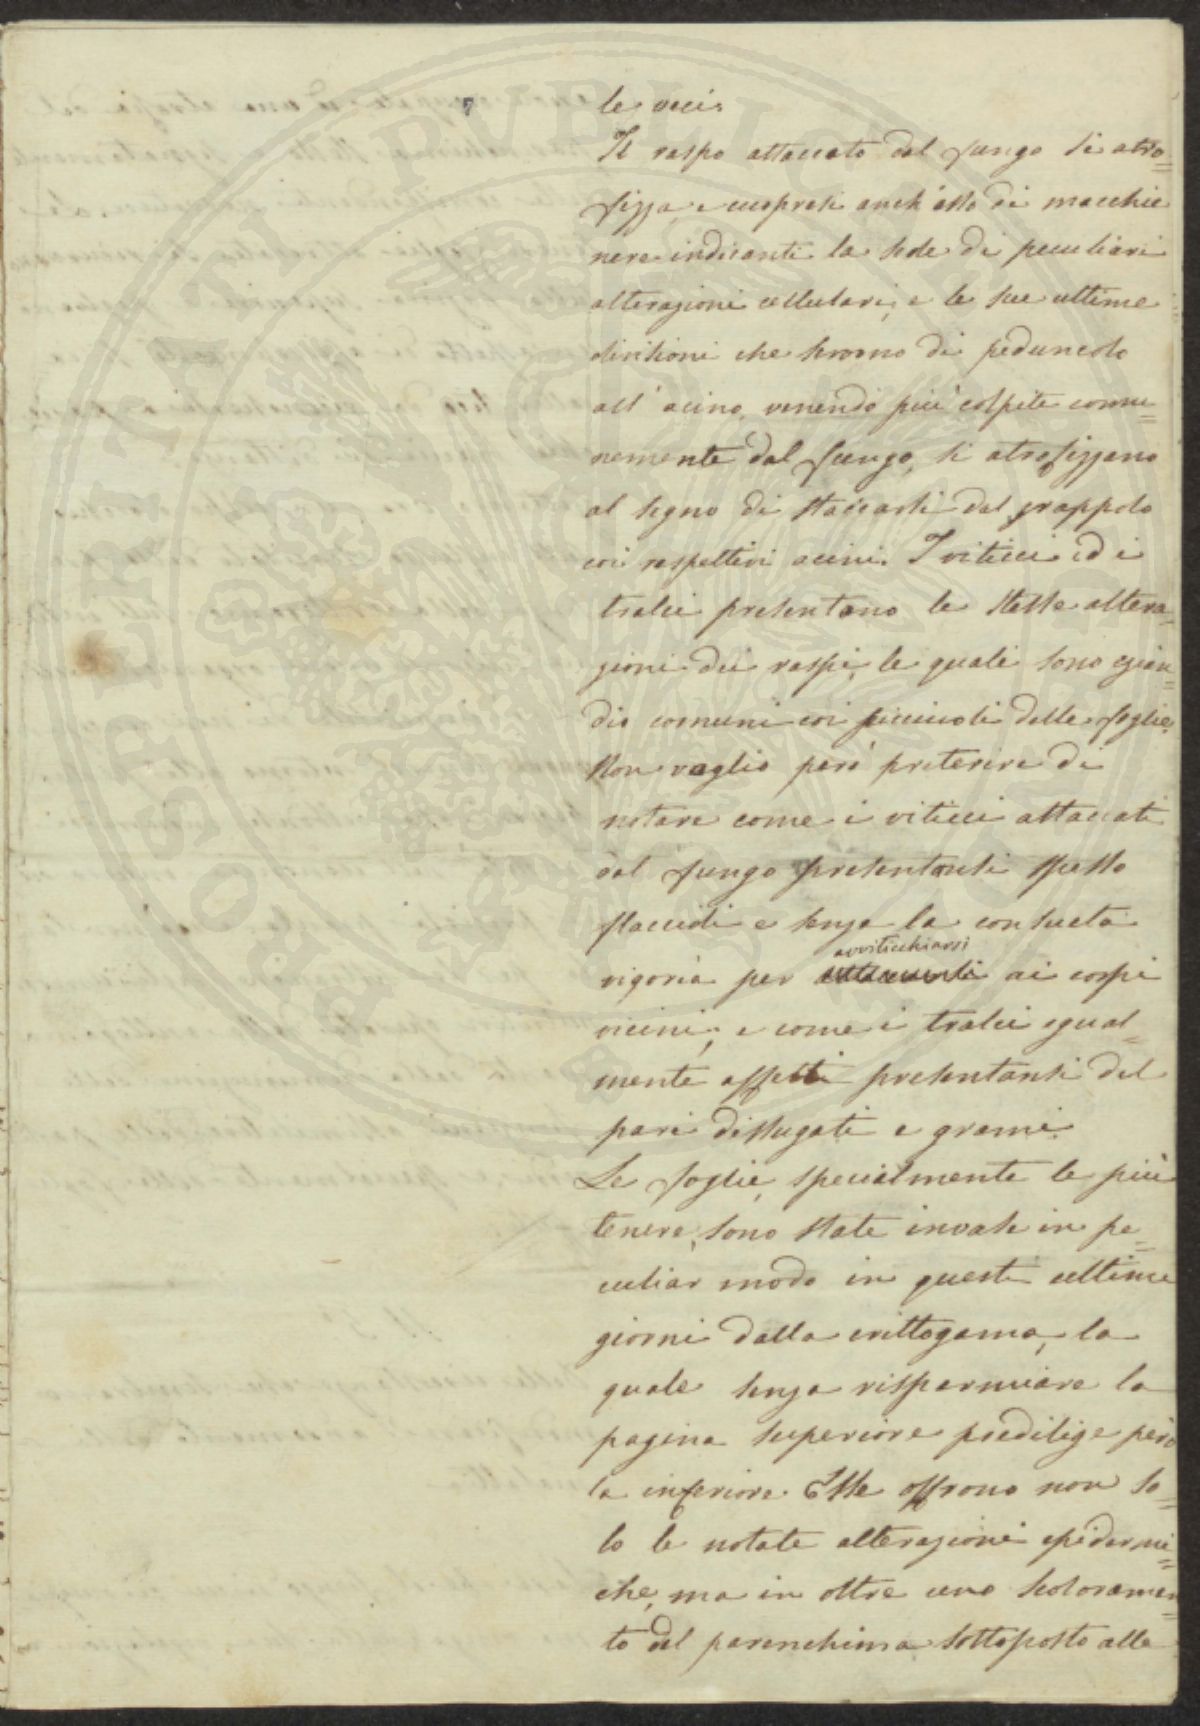 le ocei.
Il raspo attaccato dal fungo si atro=
fizza, e cuopresi anch'esso di macchie
nere indicanti la sede di peculiari
alterazioni cellulari; e le sue ultime
divisioni che servono di peduncolo
all'acino, venendo più colpite comu=
nemente dal fungo, si atrofizzano
al segno di staccarsi dal grappolo
coi respettivi acini. I viticci ed i
tralci presentano le stesse altera=
zioni dei raspi, le quali sono ezian=
dio comuni coi picciuoli delle foglie.
Non voglio però preterire di
notare come i viticci attaccati
dal fungo presentansi spesso
flaccidi e senza la consueta
avviticchiarsi
vigoria per attaccarsi ai corpi
vicini; e come i tralci egual=
mente affetti presentansi del
pari dissugati e grami.
Le foglie, specialmente le più
tenere, sono state invase in pe=
culiar modo in questi ultimi
giorni dalla crittogama, la
quale senza risparmiare la
pagina superiore predilige però
la inferiore. Esse offrono non so=
lo le notate alterazioni epidermi=
che, ma in oltre uno scoloramen=
to del parenchima sottoposto alle
PROSPERITATI PVBLICAE